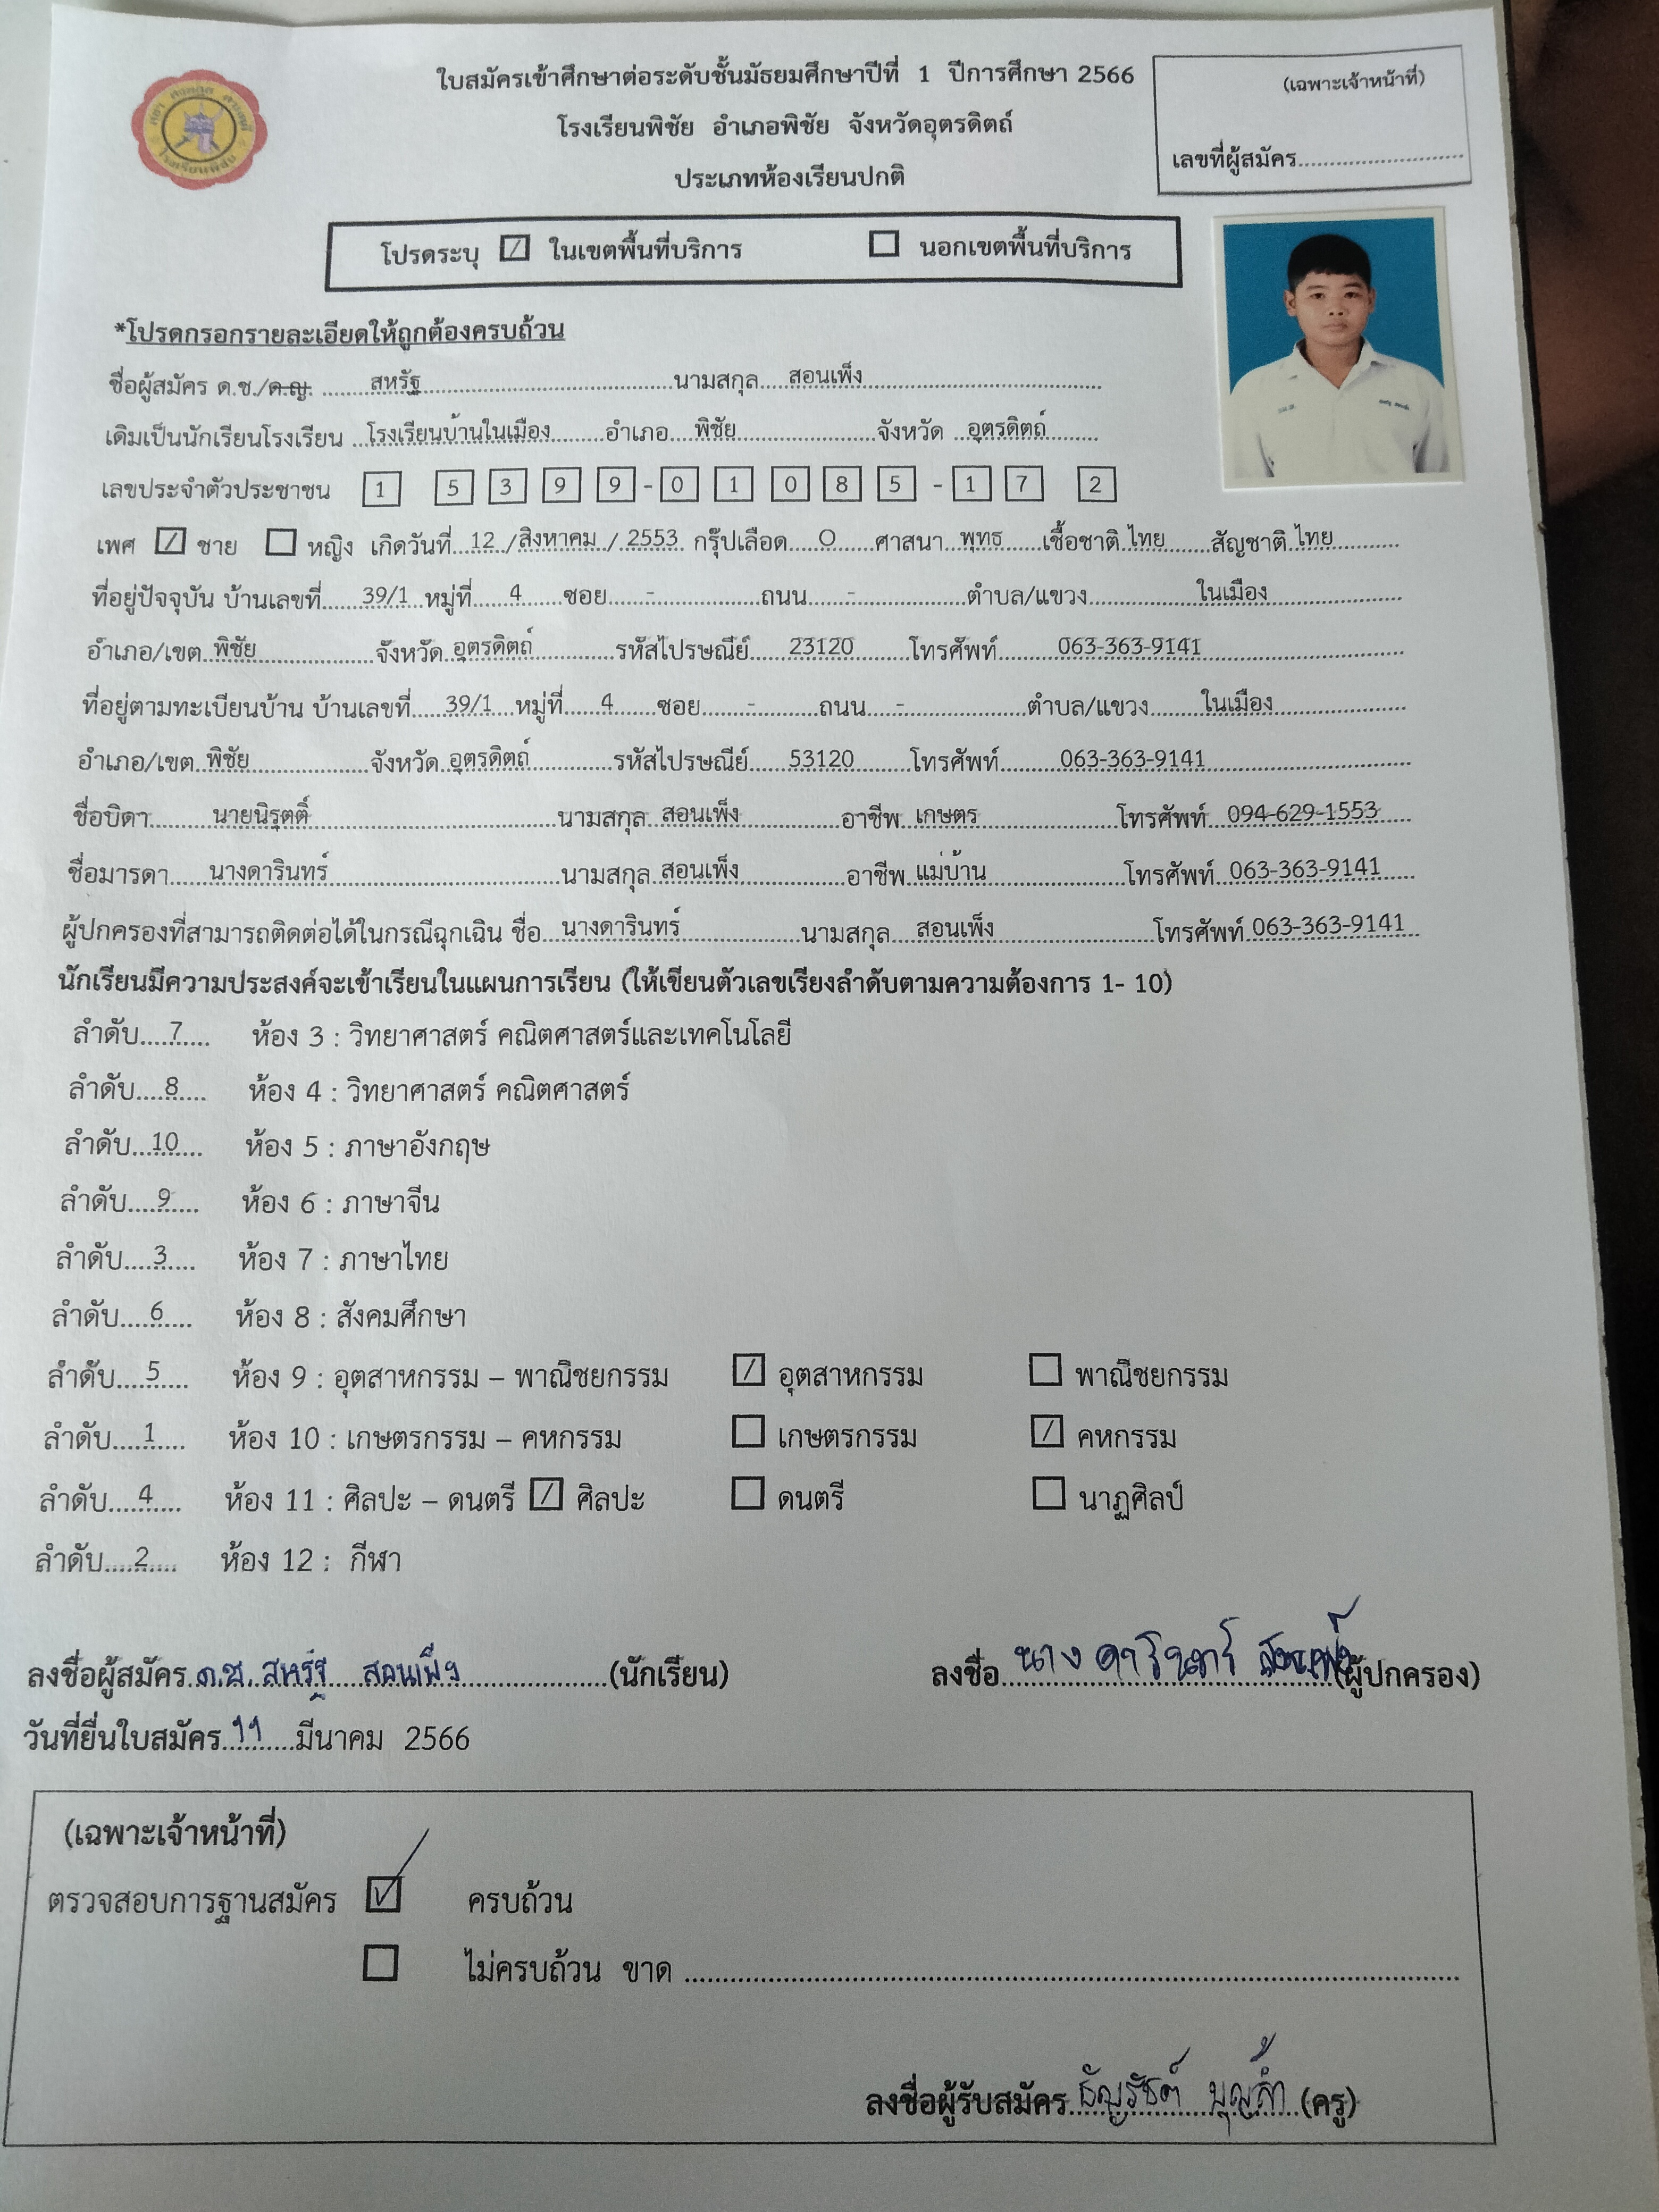 ใบสมัครเข้าศึกษาต่อระดับชั้นมัธยมศึกษาปีที่ 1 ปีการศึกษา 2566
โรงเรียนพิชัย อำเภอพิชัย จังหวัดอุตรดิตถ์
ประเภทห้องเรียนปกติ
(เฉพาะเจ้าหน้าที่)
เลขที่ผู้สมัคร
โรงเรียนพิชัย
โปรดระบุ ☑ ในเขตพื้นที่บริการ ☐ นอกเขตพื้นที่บริการ
*โปรดกรอกรายละเอียดให้ถูกต้องครบถ้วน
ชื่อผู้สมัคร ด.ช./ด.ญ. สหรัฐ นามสกุล สอนเพ็ง
เดิมเป็นนักเรียนโรงเรียน โรงเรียนบ้านในเมือง อำเภอ พิชัย จังหวัด อุตรดิตถ์
เลขประจำตัวประชาชน 1 5 3 9 9 - 0 1 0 8 5 - 1 7 2
เพศ ☑ ชาย ☐ หญิง เกิดวันที่ 12 / สิงหาคม / 2553 กรุ๊ปเลือด O ศาสนา พุทธ เชื้อชาติ ไทย สัญชาติ ไทย
ที่อยู่ปัจจุบัน บ้านเลขที่ 39/1 หมู่ที่ 4 ซอย - ถนน - ตำบล/แขวง ในเมือง
อำเภอ/เขต พิชัย จังหวัด อุตรดิตถ์ รหัสไปรษณีย์ 23120 โทรศัพท์ 063-363-9141
ที่อยู่ตามทะเบียนบ้าน บ้านเลขที่ 39/1 หมู่ที่ 4 ซอย - ถนน - ตำบล/แขวง ในเมือง
อำเภอ/เขต พิชัย จังหวัด อุตรดิตถ์ รหัสไปรษณีย์ 53120 โทรศัพท์ 063-363-9141
ชื่อบิดา นายนิรุตติ์ นามสกุล สอนเพ็ง อาชีพ เกษตร โทรศัพท์ 094-629-1553
ชื่อมารดา นางดารินทร์ นามสกุล สอนเพ็ง อาชีพ แม่บ้าน โทรศัพท์ 063-363-9141
ผู้ปกครองที่สามารถติดต่อได้ในกรณีฉุกเฉิน ชื่อ นางดารินทร์ นามสกุล สอนเพ็ง โทรศัพท์ 063-363-9141
นักเรียนมีความประสงค์จะเข้าเรียนในแผนการเรียน (ให้เขียนตัวเลขเรียงลำดับตามความต้องการ 1- 10)
ลำดับ 7 ห้อง 3 : วิทยาศาสตร์ คณิตศาสตร์และเทคโนโลยี
ลำดับ 8 ห้อง 4 : วิทยาศาสตร์ คณิตศาสตร์
ลำดับ 10 ห้อง 5 : ภาษาอังกฤษ
ลำดับ 9 ห้อง 6 : ภาษาจีน
ลำดับ 3 ห้อง 7 : ภาษาไทย
ลำดับ 6 ห้อง 8 : สังคมศึกษา
ลำดับ 5 ห้อง 9 : อุตสาหกรรม – พาณิชยกรรม ☑ อุตสาหกรรม ☐ พาณิชยกรรม
ลำดับ 1 ห้อง 10 : เกษตรกรรม – คหกรรม ☐ เกษตรกรรม ☑ คหกรรม
ลำดับ 4 ห้อง 11 : ศิลปะ – ดนตรี ☑ ศิลปะ ☐ ดนตรี ☐ นาฏศิลป์
ลำดับ 2 ห้อง 12 : กีฬา
ลงชื่อผู้สมัคร ด.ช. สหรัฐ สอนเพ็ง (นักเรียน) ลงชื่อ นาง ดารินทร์ สอนเพ็ง (ผู้ปกครอง)
วันที่ยื่นใบสมัคร 11 มีนาคม 2566
(เฉพาะเจ้าหน้าที่)
ตรวจสอบการฐานสมัคร ☑ ครบถ้วน
☐ ไม่ครบถ้วน ขาด
ลงชื่อผู้รับสมัคร ธัญรัชต์ (ครู)